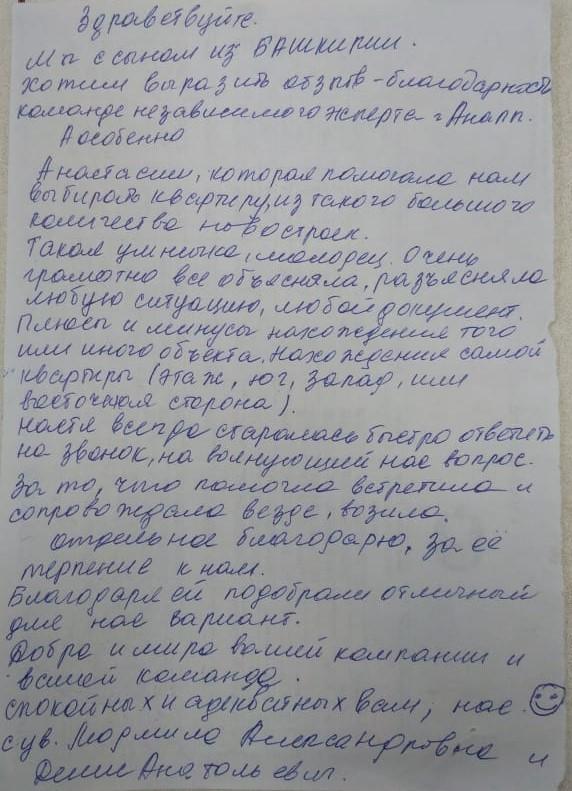 Здравствуйте.
Мы с сыном из БАШКИРИИ.
хотим выразить отзыв-благодарность
команде независимого эксперта г Анапп.
А особенно
Анастасии, которая помогала нам
выбирать квартиру, из такого большого
количества новостроек.
Такая умничка, молодец. Очень
грамотно все объясняла, разъясняла
любую ситуацию, любой документ.
Плюсы и минусы нахождения того
или иного объекта. Нахождения самой
квартиры (этаж, юг, запад, или
восточная сторона).
Настя всегда старалась быстро ответить
на звонок, на волнующий нас вопрос.
За то, что помогла встретила и
сопровождала везде, возила.
отдельное благодарю, за её
терпение к нам.
Благодаря ей подобрали отличный
для нас вариант.
Добра и мира вашей компании и
вашей команде.
спокойных и адекватных вам, нас.
с ув. Людмила Александровна и
Денис Анатольевич.